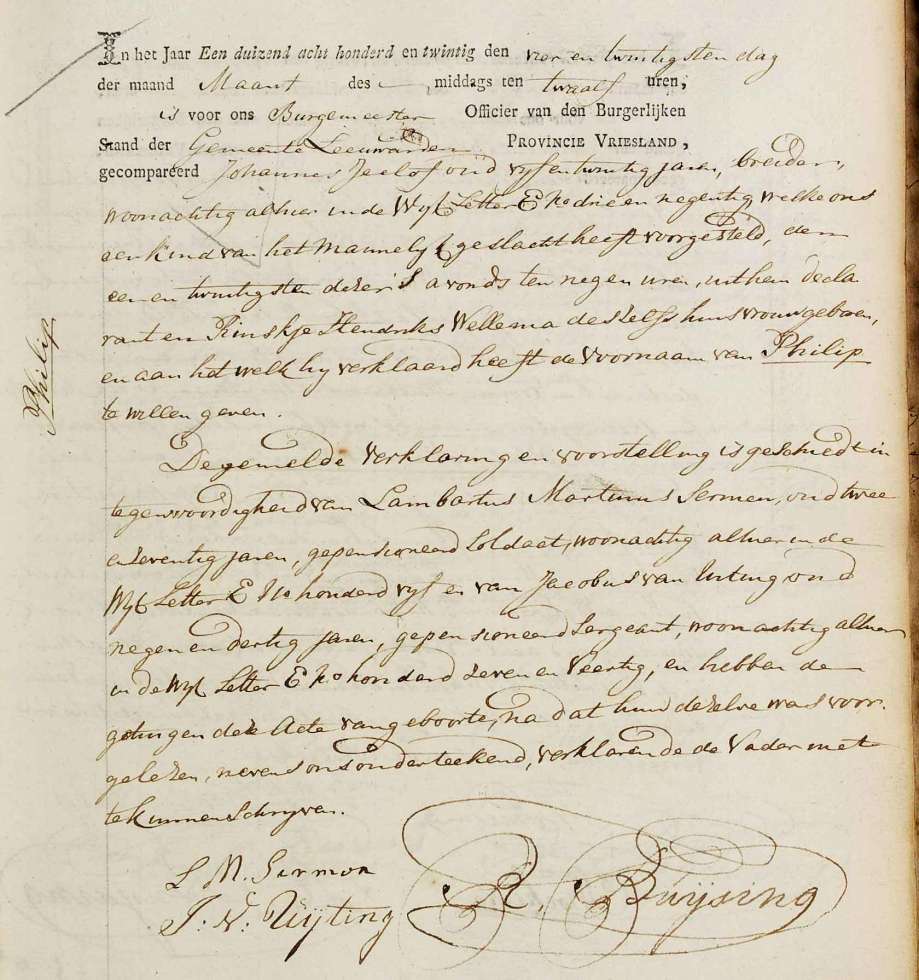 In het Jaar Een duizend acht honderd en twintig den vier en twintigsten dag
der maand Maart des middags ten twaalf uren,
is voor ons Burgemeester Officier van den Burgerlijken
Stand der Gemeente Leeuwarden PROVINCIE VRIESLAND,
gecompareerd Johannes Jeelof oud vyf en twintig jaren, breider,
woonachtig alhier in de Wyk Letter E No drie en negentig, welke ons
een kind van het Mannelyk geslacht heeft voorgesteld, den
een en twintigsten dezer 's avonds ten negen uren, uit hem decla
rant en Rinskje Hendriks Wellema deszelfs huisvrouw geboren,
en aan het welk hy verklaard heeft de Voornaam van Philip
te willen geven.
Philip
De gemelde verklaring en voorstelling is geschiedt in
tegenwoordigheid van Lambartus Martinus Sermon, oud twee
en zeventig jaren, gepensioneerd Soldaat, woonachtig alhier in de
Wyk Letter E No honderd vyf en van Jacobus van Uiting oud
negen en dertig jaren, gepensioneerd Sergeant, woonachtig alhier
in de Wyk Letter E No honderd zeven en Veertig, en hebben de
getuigen deze Acte van geboorte, na dat hun dezelve was voor
gelezen, nevens ons onderteekend, verklarende de Vader niet
te kunnen schryven.
L M. Sermon
J. V. Uijting R. Buijsing